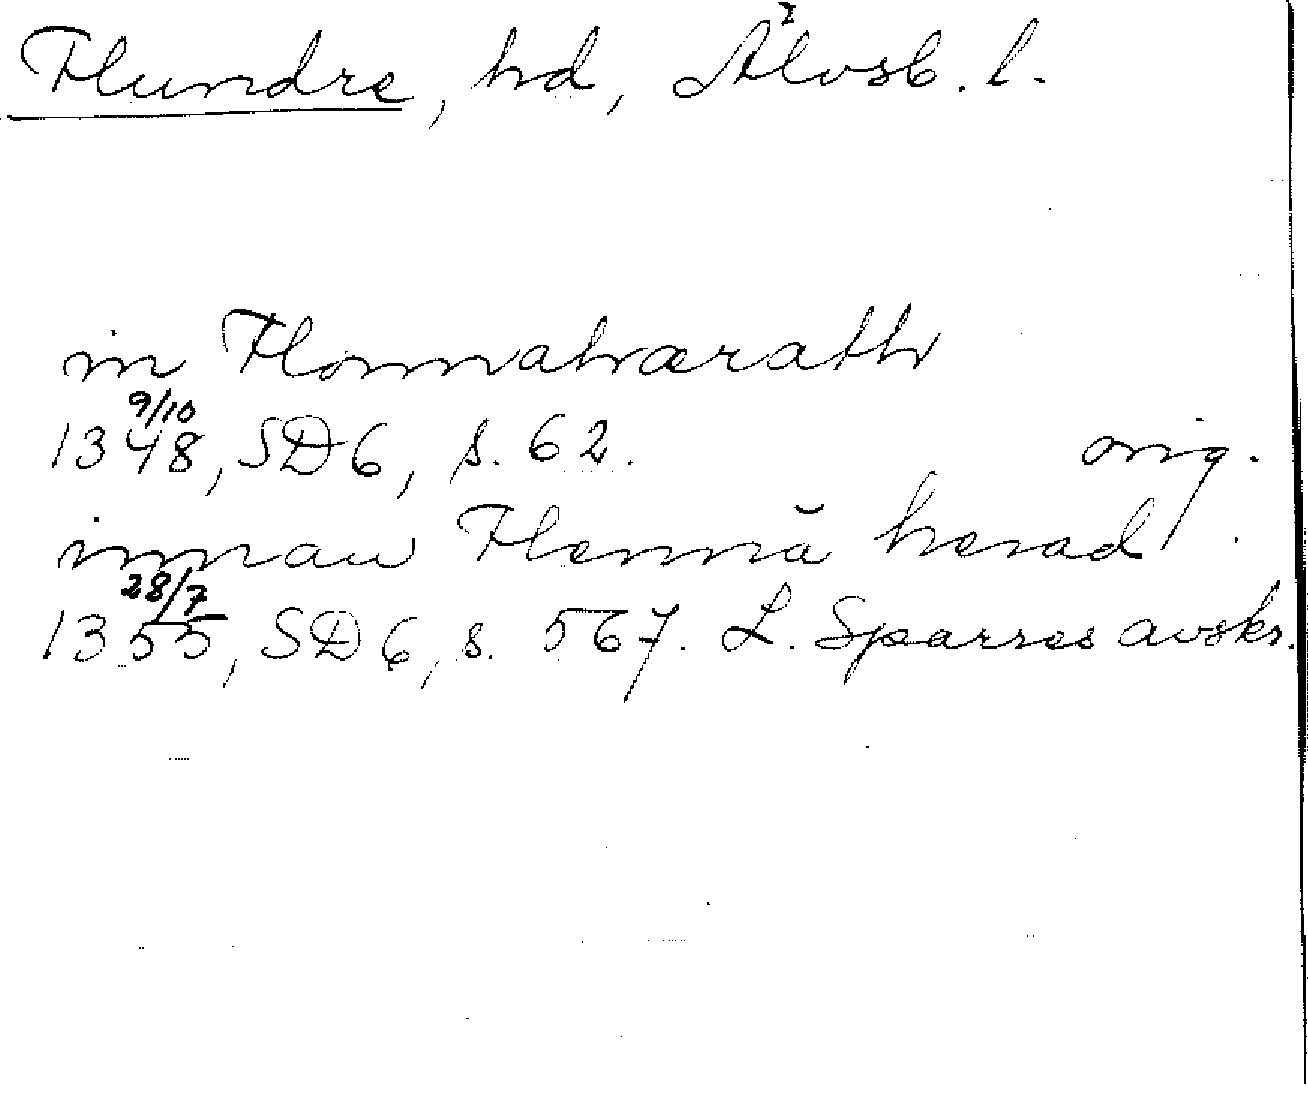 Flundre, hd, Älvsb. l.
in Flomnahæræth
1348 9/10, SD6, s. 62. orig.
innan Flenna herad
1355 28/7, SD6, s. 567. L. Sparres avskr.